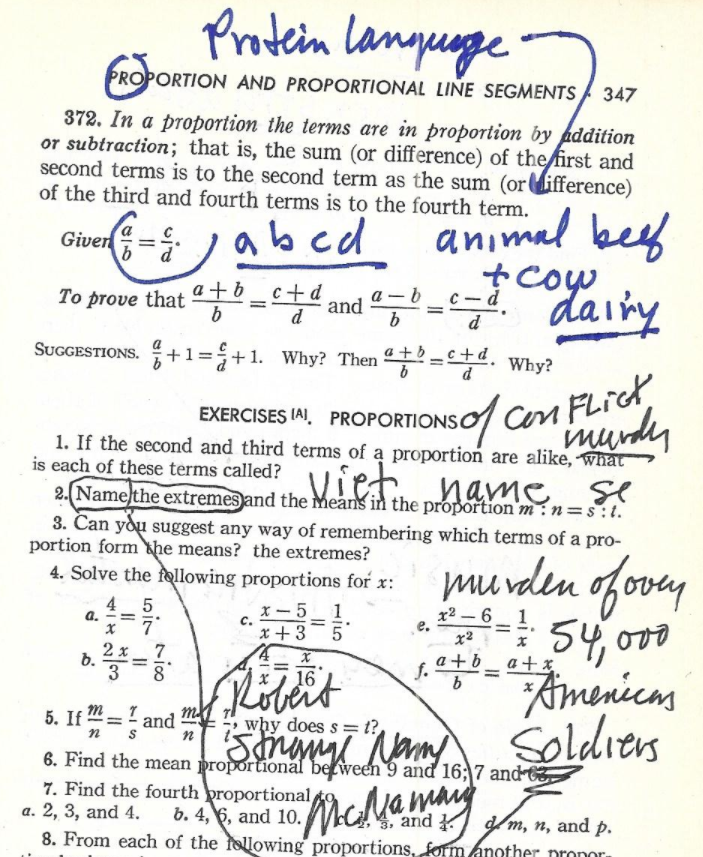 Protein language
PROPORTION AND PROPORTIONAL LINE SEGMENTS 347
372. In a proportion the terms are in proportion by addition
or subtraction; that is, the sum (or difference) of the first and
second terms is to the second term as the sum (or difference)
of the third and fourth terms is to the fourth term.
Given a/b = c/d. abcd animal beef
+ cow
To prove that (a + b)/b = (c + d)/d and (a − b)/b = (c − d)/d. dairy
SUGGESTIONS. a/b + 1 = c/d + 1. Why? Then (a + b)/b = (c + d)/d. Why?
EXERCISES [A]. PROPORTIONS of conFLict
murder
1. If the second and third terms of a proportion are alike, what
is each of these terms called?
Viet name se
2. Name the extremes and the means in the proportion m : n = s : t.
3. Can you suggest any way of remembering which terms of a pro-
portion form the means? the extremes?
4. Solve the following proportions for x: murder of over
a. 4/x = 5/7. c. (x − 5)/(x + 3) = 1/5. e. (x² − 6)/x² = 1/x. 54,000
b. 2x/3 = 7/8. d. 4/x = x/16. f. (a + b)/b = (a + x)/x. American
Robert
5. If m/n = r/s and m/n = r/t, why does s = t? Soldiers
Strange Name
6. Find the mean proportional between 9 and 16; 7 and 63.
7. Find the fourth proportional to
McNamara
a. 2, 3, and 4. b. 4, 6, and 10. c. 1/2, 1/3, and 1/4. d. m, n, and p.
8. From each of the following proportions, form another propor-